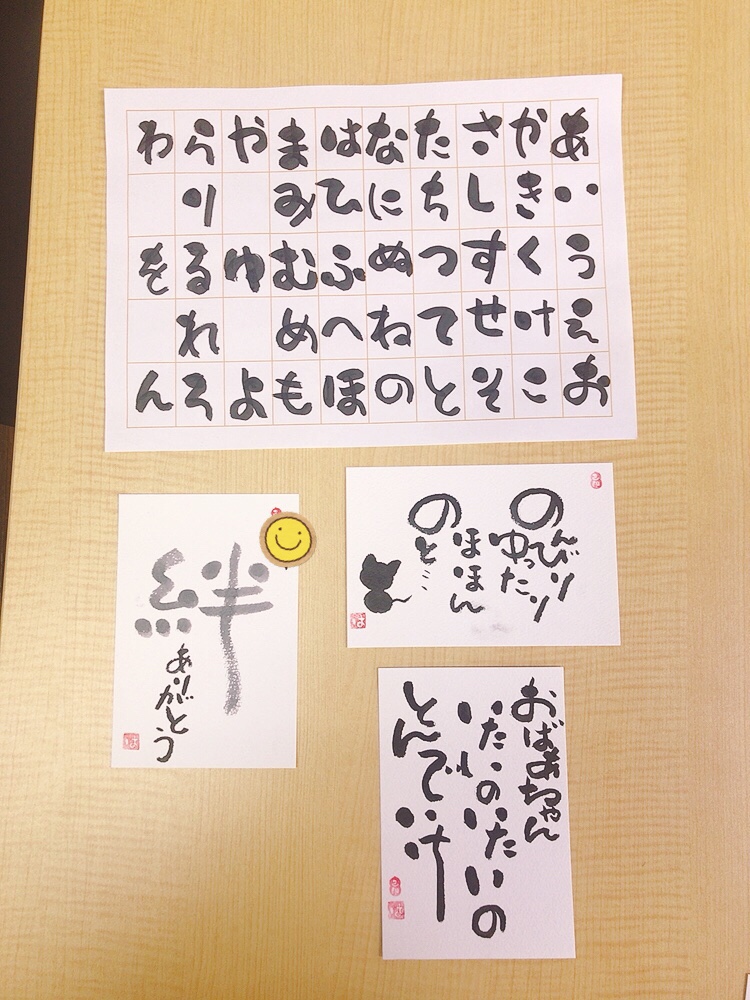 あいうえお
かきくけこ
さしすせそ
たちつてと
なにぬねの
はひふへほ
まみむめも
やゆよ
らりるれろ
わをん
のんびり
ゆったり
のほほんと…
絆
ありがとう
おばあちゃん
いたいのいたいの
とんでいけ